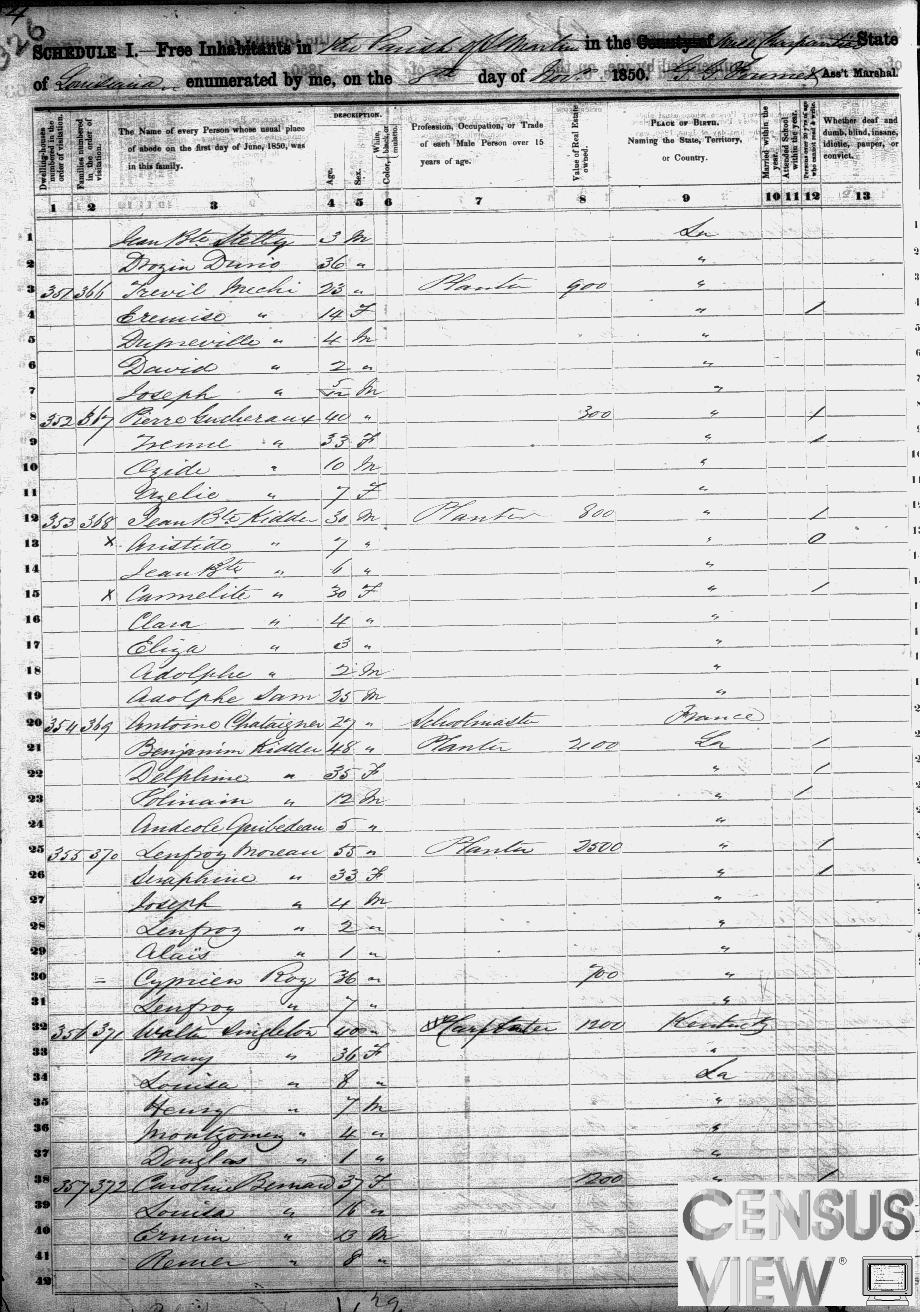 4
326
SCHEDULE I.—Free Inhabitants in the Parish of St Martin in the County of State
of Louisiana enumerated by me, on the 8th day of Novr 1850. Ass't Marshal.
Dwelling-houses numbered in the order of visitation.
Families numbered in the order of visitation.
The Name of every Person whose usual place of abode on the first day of June, 1850, was in this family.
DESCRIPTION.
Age.
Sex.
Color, White, black, or mulatto.
Profession, Occupation, or Trade of each Male Person over 15 years of age.
Value of Real Estate owned.
PLACE OF BIRTH. Naming the State, Territory, or Country.
Married within the year.
Attended School within the year.
Persons over 20 y'rs of age who cannot read & write.
Whether deaf and dumb, blind, insane, idiotic, pauper, or convict.
1 2 3 4 5 6 7 8 9 10 11 12 13
1 Jean Bte Stelly 3 M La
2 Drozin Dusio 36 " "
3 351 366 Trevil Mechi 23 " Planter 900 "
4 Eremise " 14 F " 1
5 Dupreville " 4 M "
6 David " 2 " "
7 Joseph " 5/12 M "
8 352 367 Pierre Guilheraux 40 " 300 " 1
9 Irenne " 33 F " 1
10 Ozide " 10 M "
11 Azelie " 7 F "
12 353 368 Jean Bte Kidder 30 M Planter 800 " 1
13 x Aristide " 7 " " 0
14 Jean Bte " 6 " "
15 x Carmelite " 30 F " 1
16 Clara " 4 " "
17 Eliza " 3 " "
18 Adolphe " 2 M "
19 Adolphe Sam 25 M "
20 354 369 Antoine Chataigner 27 " Scholmaster France
21 Benjamin Kidder 48 " Planter 2100 La 1
22 Delphine " 35 F " 1
23 Polinain " 12 M " 1
24 Andeole Guibedeau 5 " "
25 355 370 Lenfroy Moreau 55 " Planter 2500 " 1
26 Seraphine " 33 F " 1
27 Joseph " 4 M "
28 Lenfroy " 2 " "
29 Alaïs " 1 " "
30 = Cyprien Roy 36 " 700 "
31 Lenfroy " 7 " "
32 356 371 Walter Singleton 40 " Carpenter 1200 Kentucky
33 Mary " 36 F "
34 Louisa " 8 " La
35 Henry " 7 M "
36 Montgomery " 4 " "
37 Douglas " 1 " "
38 357 372 Caroline Bernard 37 F 1200 " 1
39 Louisa " 16 "
40 Ernim " 13 M
41 Remer " 8 "
42
CENSUS
VIEW®